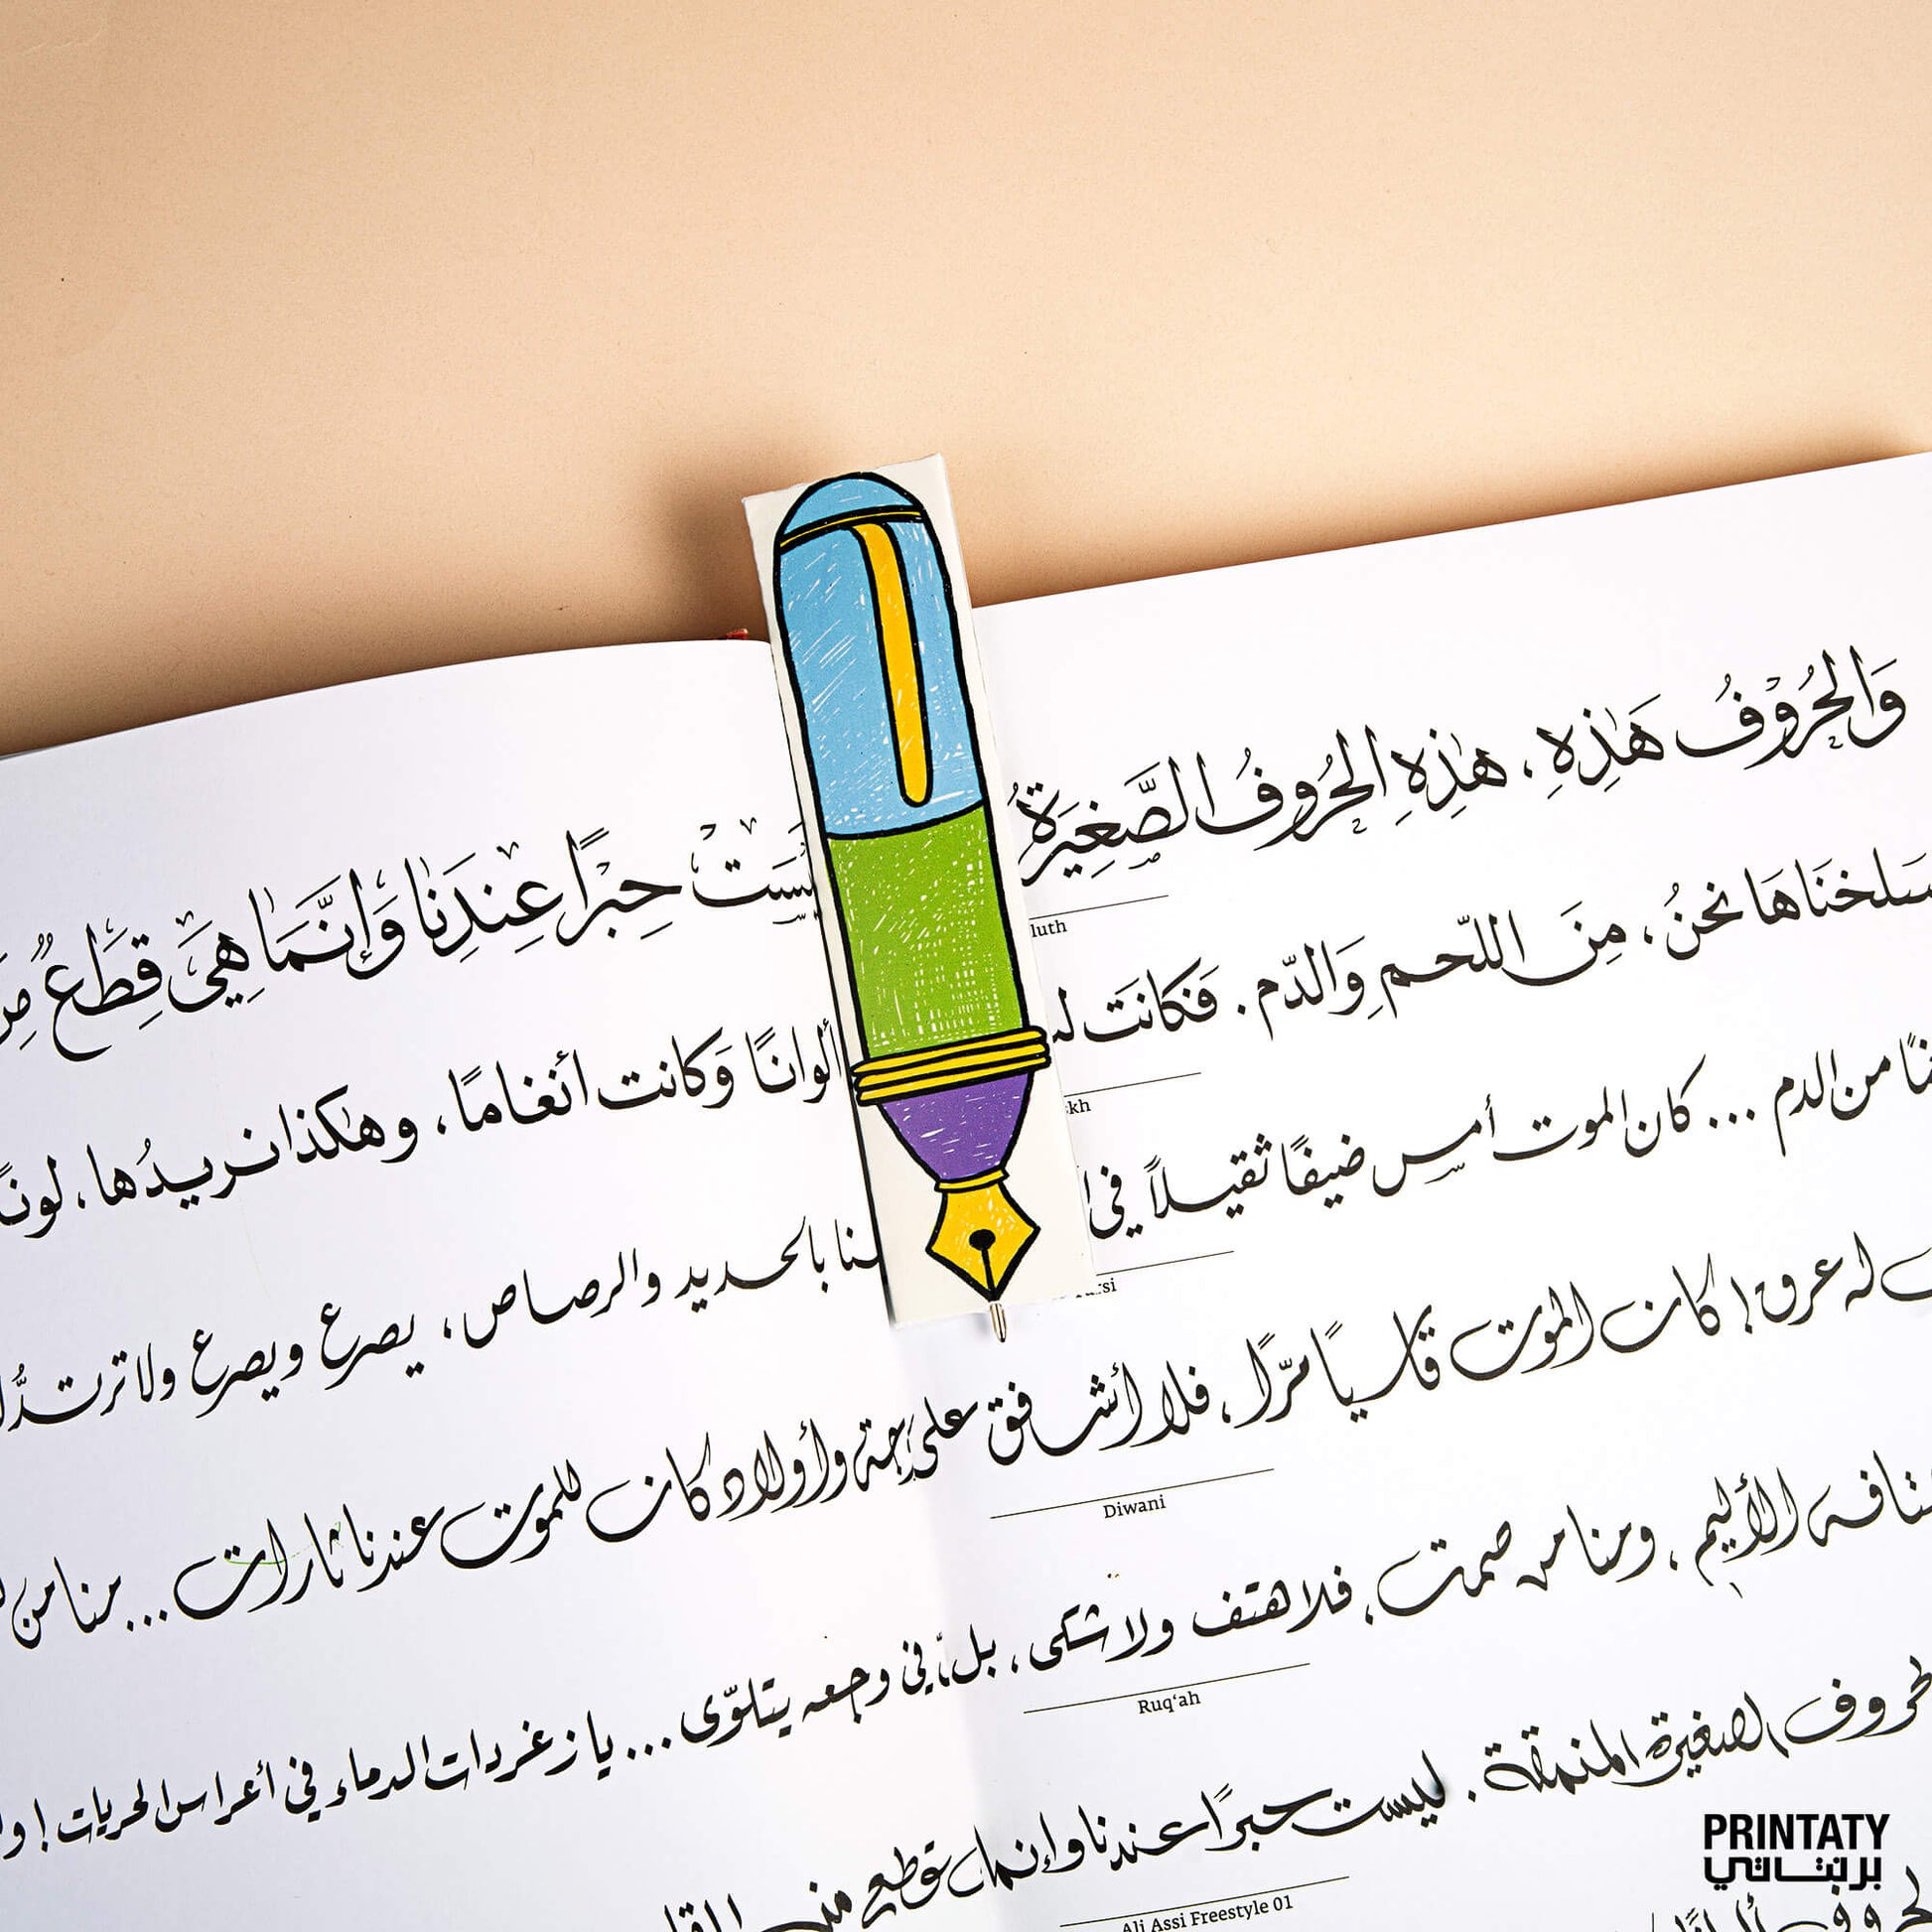 وَالحُرُوْفُ هٰذِهِ ، هٰذِهِ الحُرُوفُ الصَّغِيَرةُ لَيسَتْ حِبْرًا عِندَنَا وَإنَّمَا هِيَ قِطَعٌ مِنَ
luth
سَلخنَاهَا نحنُ ، مِنَ اللّحم وَالدّم . فَكانَتَ ألوانًا وَكانت انغامًا ، وهٰكذا نريدُها ، لونًا
skh
من الدم ... كان الموت أمسِ ضيفًا ثقيلاً في بالحديد والرصاص ، يصرع ويصرع ولا ترتدُّ
له عرق ! كان الموت قاسيًا مرًّا ، فلا أشفق على وأولاد كان للموت عندنا ثارات ... منا من
Diwani
الأليم ، ومنا من صمت ، فلا هتف ولا شكى ، بل في وجعه يتلوّى ... يا زغردات الدماء في أعراس الحريات !
Ruq‘ah
الصغيرة المنمقة . ليست حبرًا عندنا وإنما قطع من
Ali Assi Freestyle 01
PRINTATY
برنتاتي